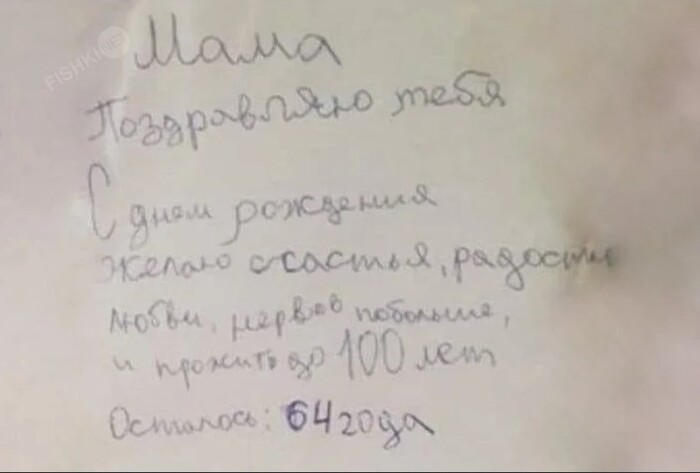 FISHKI.NET
Мама
Поздравляю тебя
С днем рождения
желаю счастья, радости
любви, нервов побольше,
и прожить до 100 лет
Осталось: 64 года